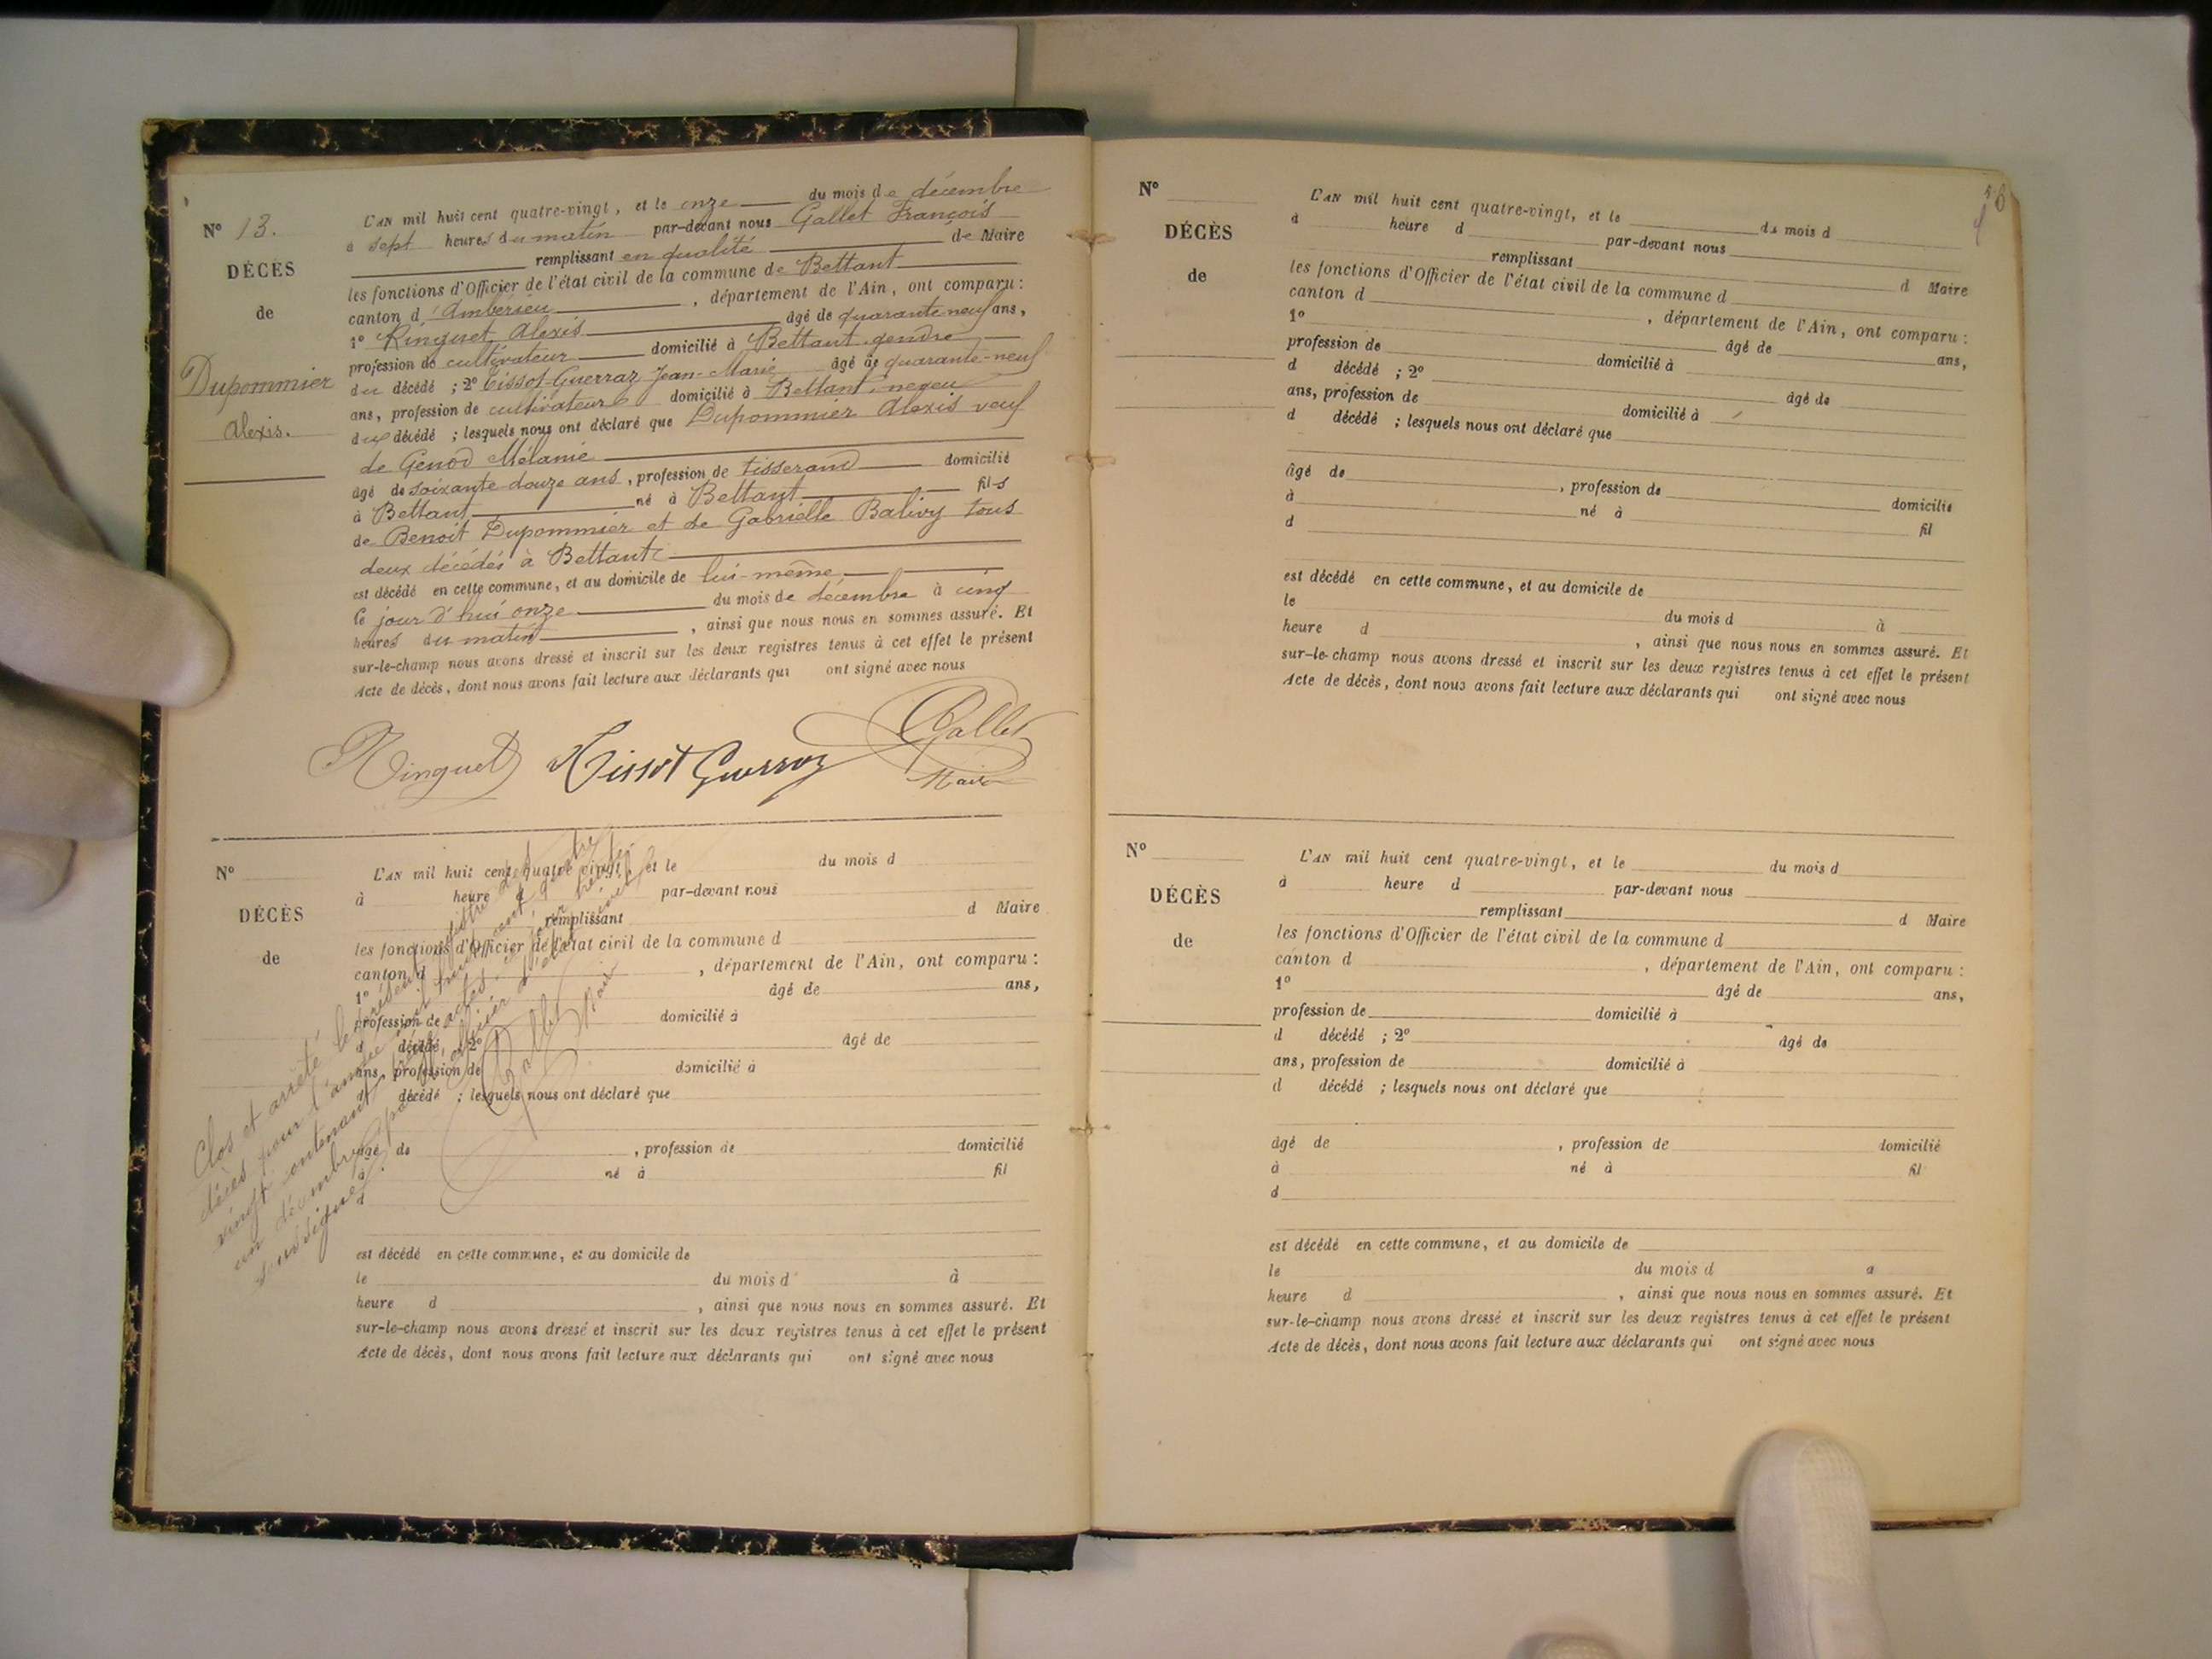 N° 13.
DÉCÈS
de
Dupommier
Alexis.
L'AN mil huit cent quatre-vingt, et le onze du mois de décembre
à sept heures du matin par-devant nous Gallet François
remplissant en qualité de Maire
les fonctions d'Officier de l'état civil de la commune de Bettant
canton d'Ambérieu, département de l'Ain, ont comparu :
1° Ringuet Alexis âgé de quarante neuf ans,
profession de cultivateur domicilié à Bettant gendre
du décédé ; 2° Tissot-Guerraz Jean-Marie âgé de quarante-neuf
ans, profession de cultivateur domicilié à Bettant, neveu
du décédé ; lesquels nous ont déclaré que Dupommier Alexis veuf
de Genod Mélanie
âgé de soixante douze ans, profession de tisserand domicilié
à Bettant né à Bettant fils
de Benoit Dupommier et de Gabrielle Balivy tous
deux décédés à Bettant
est décédé en cette commune, et au domicile de lui-même
le jour d'hui onze du mois de décembre à cinq
heures du matin, ainsi que nous nous en sommes assuré. Et
sur-le-champ nous avons dressé et inscrit sur les deux registres tenus à cet effet le présent
Acte de décès, dont nous avons fait lecture aux déclarants qui ont signé avec nous
Ringuet Tissot Guerraz Gallet
Maire
N°
DÉCÈS
de
L'AN mil huit cent quatre vingt, et le du mois d
à heure d par-devant nous
remplissant d Maire
les fonctions d'Officier de l'état civil de la commune d
canton d , département de l'Ain, ont comparu :
1° âgé de ans,
profession de domicilié à
d décédé ; 2° âgé de
ans, profession de domicilié à
d décédé ; lesquels nous ont déclaré que
âgé de , profession de domicilié
à né à fil
d
est décédé en cette commune, et au domicile de
le du mois d à
heure d , ainsi que nous nous en sommes assuré. Et
sur-le-champ nous avons dressé et inscrit sur les deux registres tenus à cet effet le présent
Acte de décès, dont nous avons fait lecture aux déclarants qui ont signé avec nous
Clos et arrêté le présent
décès pour l'année mil huit cent quatre
vingt contenant actes
un décembre par
soussigné.
Gallet Maire
N°
DÉCÈS
de
L'AN mil huit cent quatre-vingt, et le du mois d
à heure d par-devant nous
remplissant d Maire
les fonctions d'Officier de l'état civil de la commune d
canton d , département de l'Ain, ont comparu :
1° âgé de ans,
profession de domicilié à
d décédé ; 2° âgé de
ans, profession de domicilié à
d décédé ; lesquels nous ont déclaré que
âgé de , profession de domicilié
à né à
d fil
est décédé en cette commune, et au domicile de
le du mois d à
heure d , ainsi que nous nous en sommes assuré. Et
sur-le-champ nous avons dressé et inscrit sur les deux registres tenus à cet effet le présent
Acte de décès, dont nous avons fait lecture aux déclarants qui ont signé avec nous
N°
DÉCÈS
de
L'AN mil huit cent quatre-vingt, et le du mois d
à heure d par-devant nous
remplissant d Maire
les fonctions d'Officier de l'état civil de la commune d
canton d , département de l'Ain, ont comparu :
1° âgé de ans,
profession de domicilié à
d décédé ; 2° âgé de
ans, profession de domicilié à
d décédé ; lesquels nous ont déclaré que
âgé de , profession de domicilié
à né à fil
d
est décédé en cette commune, et au domicile de
le du mois d à
heure d , ainsi que nous nous en sommes assuré. Et
sur-le-champ nous avons dressé et inscrit sur les deux registres tenus à cet effet le présent
Acte de décès, dont nous avons fait lecture aux déclarants qui ont signé avec nous